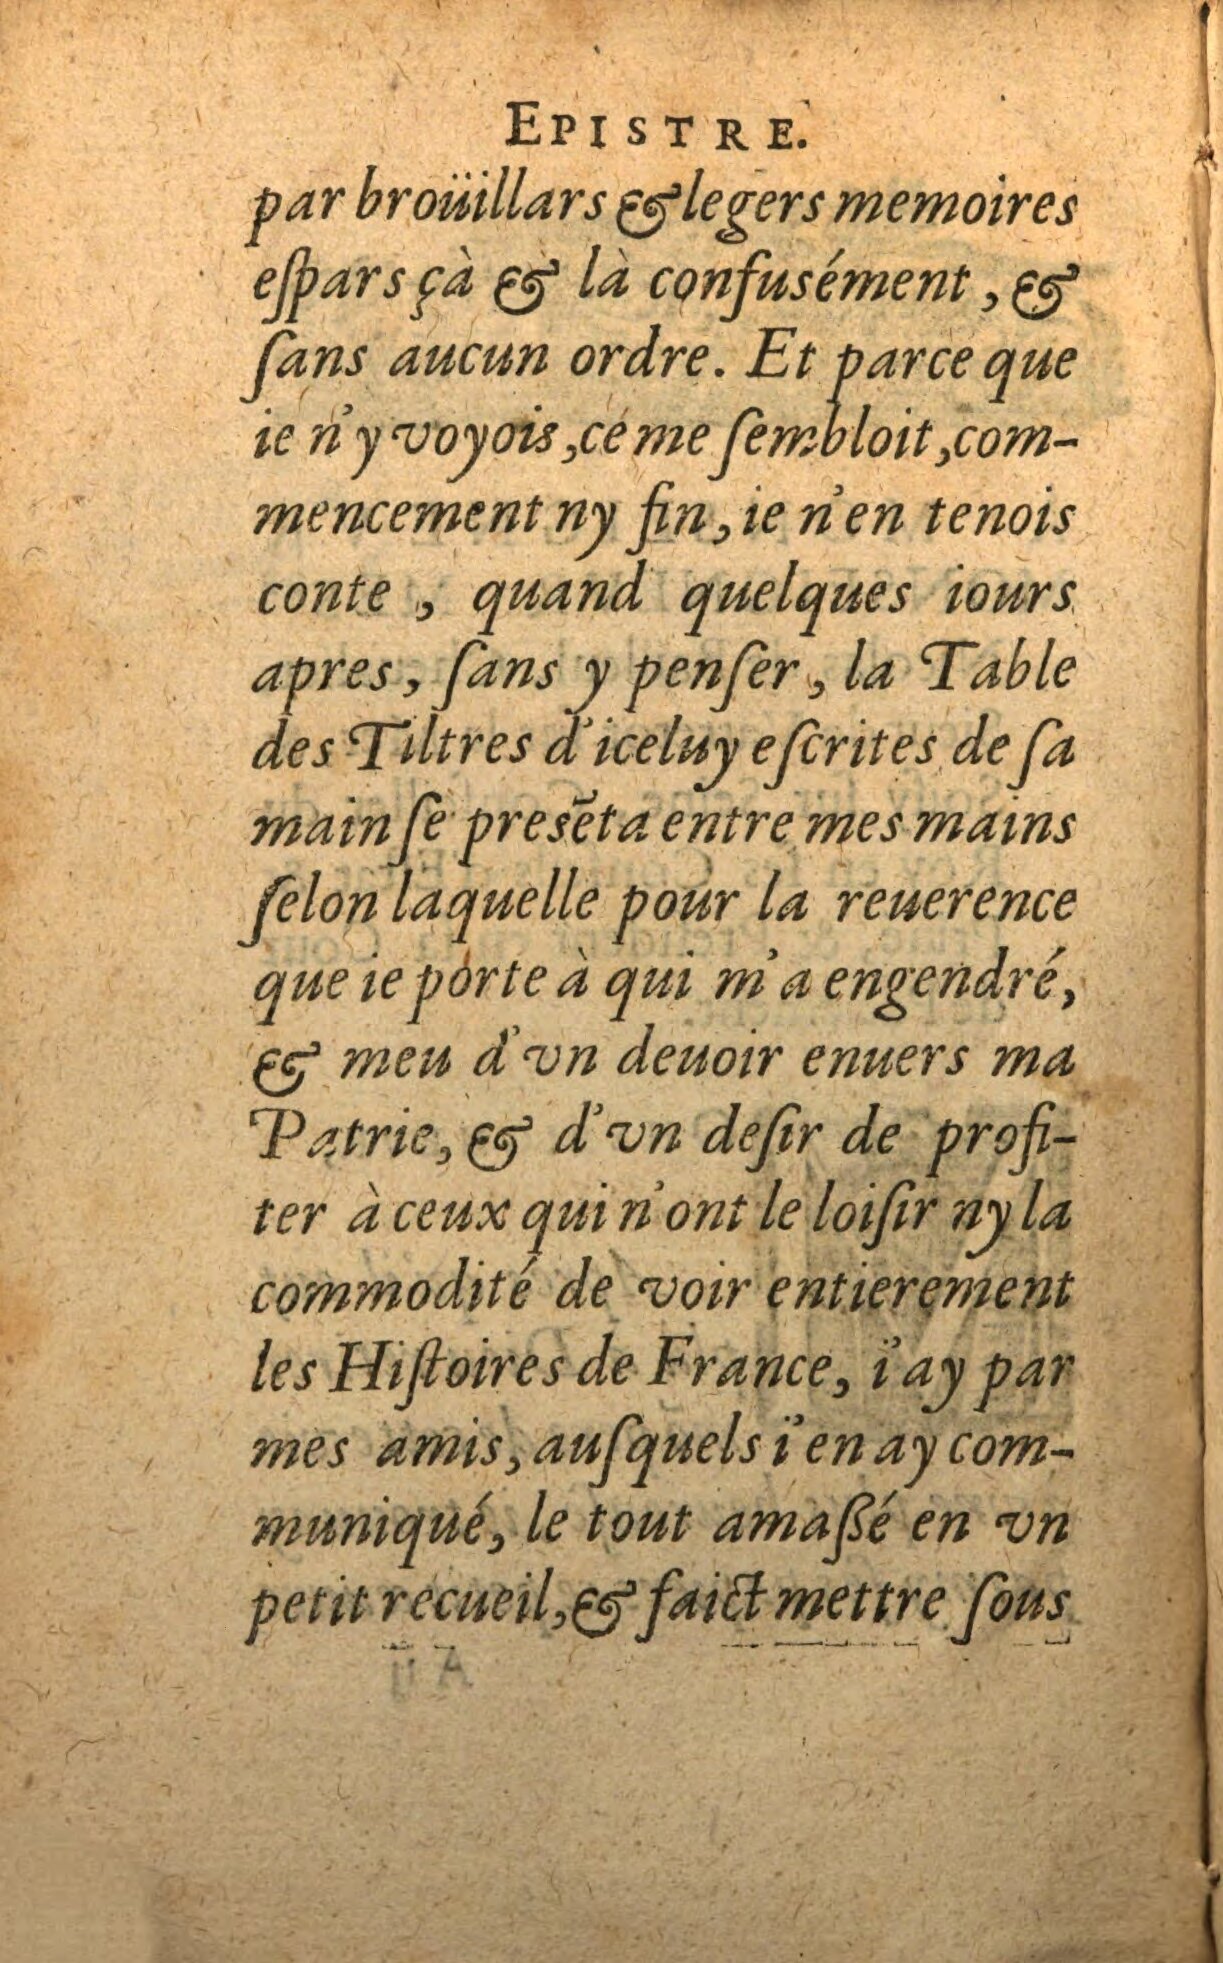 EPISTRE.
par broüillars & legers memoires
eſpars çà & là confusément, &
ſans aucun ordre. Et parce que
ie n'y voyois, ce me ſembloit, com-
mencement ny fin, ie n'en tenois
conte, quand quelques iours
apres, ſans y penſer, la Table
des Tiltres d'iceluy eſcrites de ſa
main ſe presẽta entre mes mains
ſelon laquelle pour la reuerence
que ie porte à qui m'a engendré,
& meu d'vn deuoir enuers ma
Patrie, & d'vn deſir de profi-
ter à ceux qui n'ont le loiſir ny la
commodité de voir entierement
les Hiſtoires de France, i'ay par
mes amis, auſquels i'en ay com-
muniqué, le tout amaßé en vn
petit recueil, & faict mettre ſous